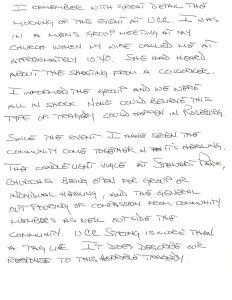 I REMEMBER WITH GREAT DETAIL THE
MORNING OF THE EVENT AT UCC. I WAS
IN A MEN'S GROUP MEETING AT MY
CHURCH WHEN MY WIFE CALLED ME AT
APPROXIMATELY 10:40. SHE HAD HEARD
ABOUT THE SHOOTING FROM A COWORKER.
I INFORMED THE GROUP AND WE WERE
ALL IN SHOCK. NONE COULD BELIEVE THIS
TYPE OF TRAGEDY COULD HAPPEN IN ROSEBURG.
SINCE THE EVENT I HAVE SEEN THE
COMMUNITY COME TOGETHER IN IT'S HEALING.
THE CANDLELIGHT VIGIL AT STEWART PARK,
CHURCHES BEING OPEN FOR GROUP OR
INDIVIDUAL HEALING, AND THE GENERAL
OUT POURING OF COMPASSION FROM COMMUNITY
MEMBERS AS WELL OUTSIDE THE
COMMUNITY. UCC STRONG IS MORE THAN
A TAG LINE. IT DOES DESCRIBE OUR
RESPONSE TO THIS HORRIBLE TRAGEDY.